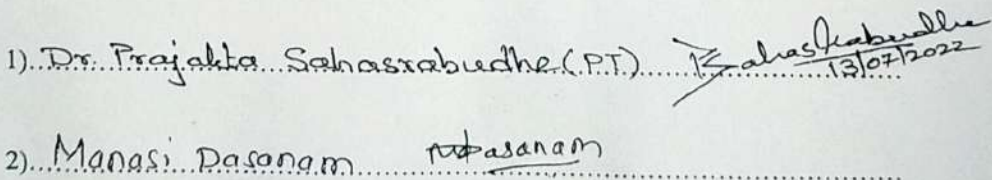 1) Dr. Prajakta Sahasrabudhe (PT) PSahasrabudhe
13/07/2022
2) Manasi Dasanam MDasanam